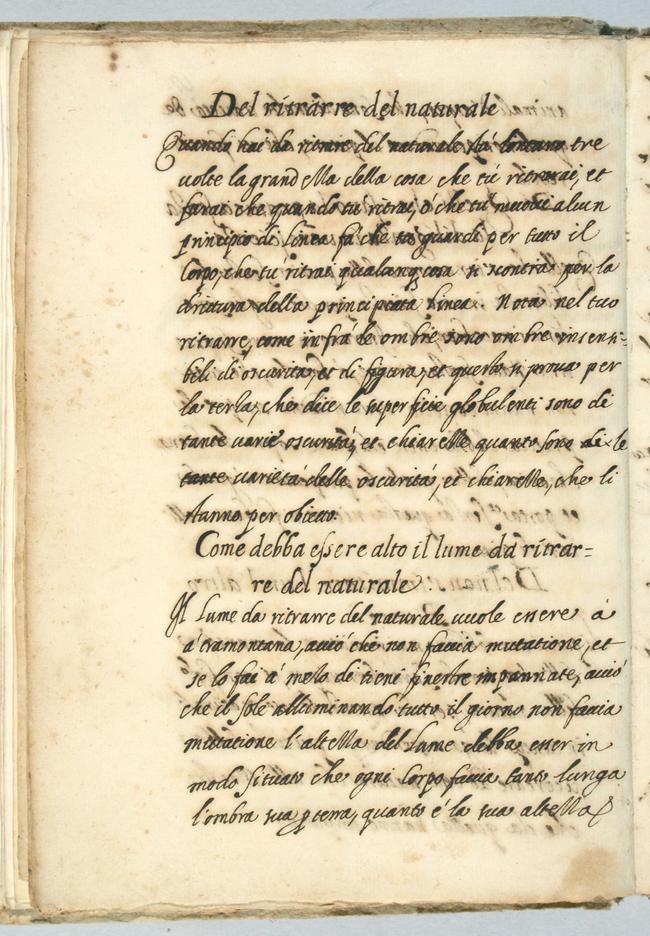 Del ritrarre del naturale
Quando hai da ritrare del naturale stà lontano tre
volte la grandezza della cosa che tu ritrai, et
farai che quando tu ritrai, ò che tu muovi alcun
principio di linea fà che tu guardi per tutto il
corpo, che tu ritrai qualunq cosa si scontra per la
dirittura della principiata linea. Nota nel tuo
ritrarre, come infrà le ombre sono ombre insensi-
bili di oscurità, et di figura, et questo si prova per
la terza, che dice le superficie globulenti sono di
tante varie oscurità, et chiarezze quanto sono le
tante varietà delle oscurità, et chiarezze, che li
stanno per obietto.
Come debba essere alto il lume da ritrar=
re del naturale.
Il lume da ritrarre del naturale vuole essere à
à tramontana, acciò che non faccia mutatione, et
se lo fai à mezo dì tieni finestre impannate, acciò
che il sole alluminando tutto il giorno non faccia
mutatione l'altezza del lume debba esser in
modo situato che ogni corpo faccia tanto lunga
l'ombra sua p terra, quanto é la sua altezza